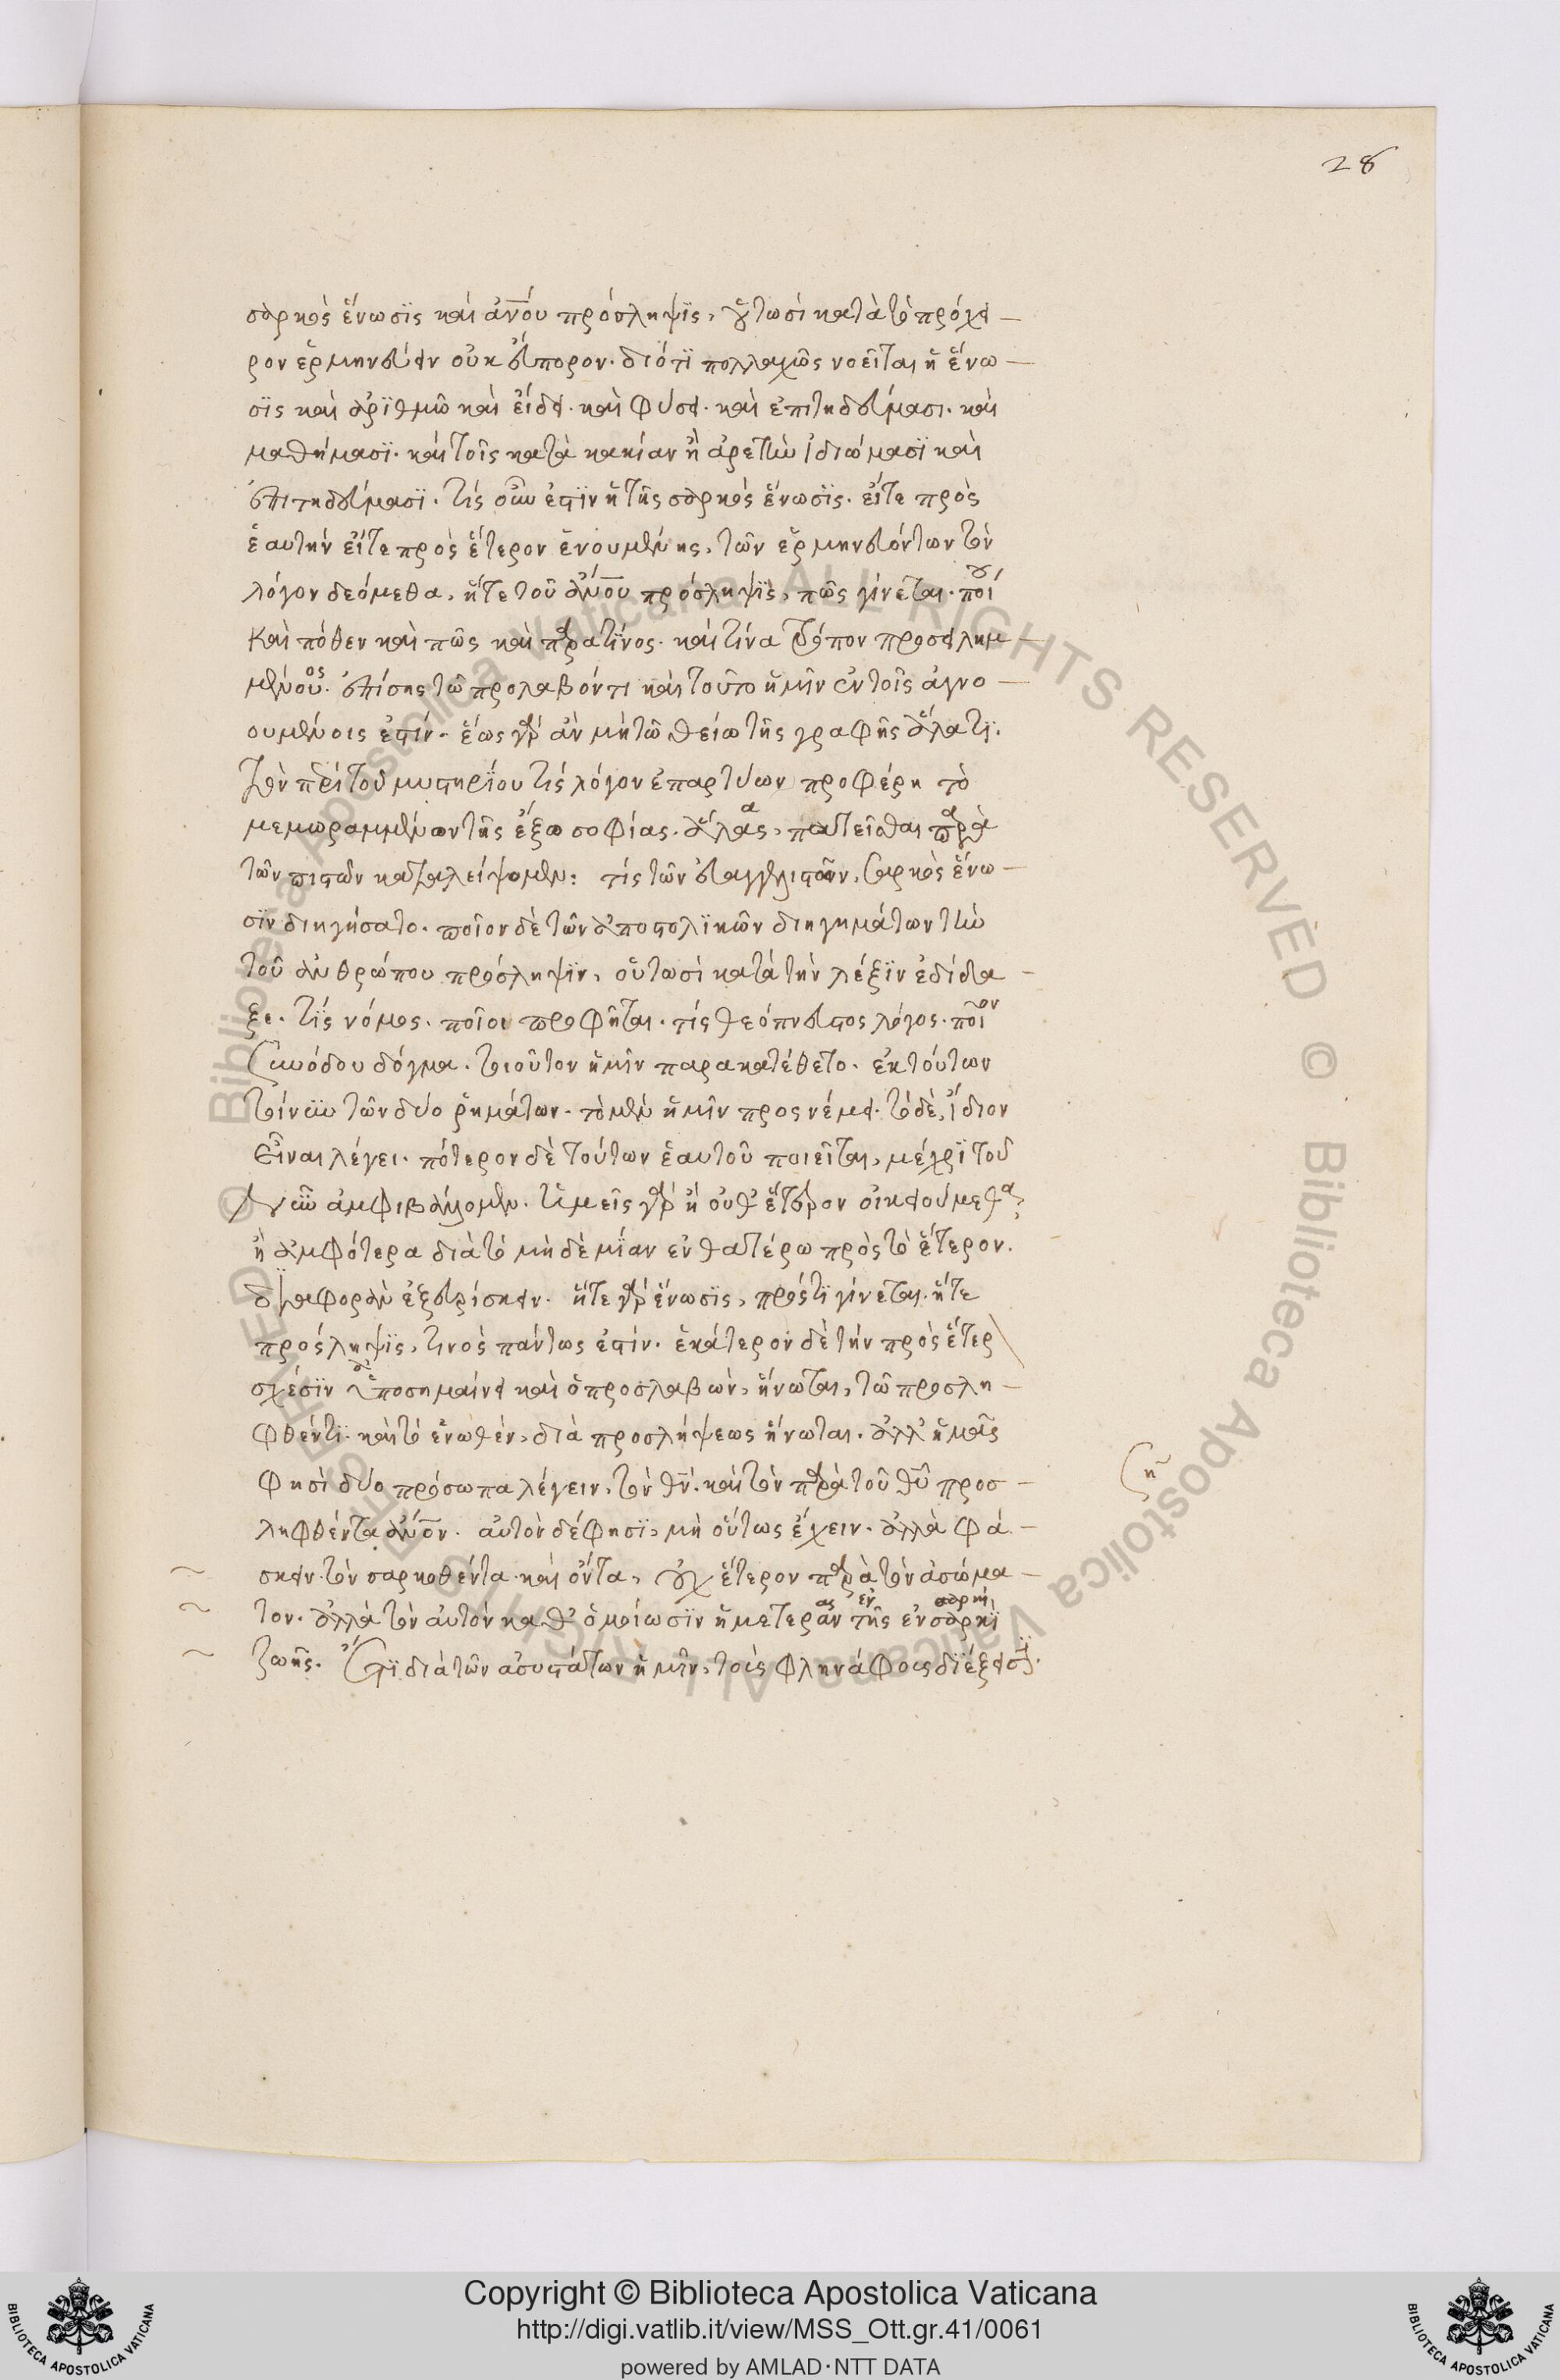 28
σαρκὸς ἕνωσϊς καὶ ἀν̅ου πρόσληψϊς, οὕτωσὶ κατὰ τὸ πρόχει
ρον ἑρμηνεύειν οὐκ εὔπορον. διότϊ πολλαχῶς νοεῖται ἡ ἕνω
σϊς καὶ ἀρϊθμῶ καὶ εἴδει. καὶ φύσει. καὶ ἐπιτηδεύμασι. καὶ
μαθήμασϊ. καὶ τοῖς κατὰ κακίαν ἢ ἀρετὴν ἰδιώμασϊ καὶ
ἐπιτηδεύμασϊ. τίς οὖν ἐστϊν ἡ τῆς σαρκὸς ἕνωσϊς. εἴτε πρὸς
ἑαυτὴν εἴτε προς ἕτερον ἑνουμένης, τῶν ἑρμηνευόντων τὸν
λόγον δεόμεθα, ἥτε τοῦ ἀν̅ου πρόσληψϊς, πῶς γίνεται. ποίου
καὶ πόθεν καὶ πῶς καὶ παρα τϊνος. καὶ τίνα τρόπον προσειλημ
μένου ος. ἐπίσης τῶ προλαβόντι καὶ τοῦτο ἡμῖν ἐν τοῖς ἀγνο
ουμένοις ἐστίν. ἕως γὰρ ἂν μὴ τῶ θείω τῆς γραφῆς ἅλατϊ.
τὸν περὶ τοῦ μυστηρίου τίς λόγον ἐπαρτύων προφέρη τὸ
μεμωραμμένων τῆς ἔξω σοφίας. ἅλας α, πατεῖσθαι παρὰ
τῶν πιστῶν καταλείψομεν: τίς τῶν εὐαγγελιστῶν, σαρκὸς ἕνω
σϊν διηγήσατο. ποῖον δὲ τῶν ἀποστολϊκῶν διηγημάτων τὴν
τοῦ ἀνθρώπου πρόσληψϊν, οὕτωσὶ κατὰ τὴν λέξϊν ἐδίδα
ξε. τίς νόμος. ποῖοι προφῆται. τίς θεόπνευστος λόγος. ποῖον
συνόδου δόγμα. τοιοῦτον ἡμῖν παρακατέθετο. ἐκ τούτων
τοίνυν τῶν δύο ῥημάτων. τὸ μὲν ἡμῖν προς νέμει. τὸ δὲ, ἴδιον
εἶναι λέγει. πότερον δὲ τούτων ἑαυτοῦ ποιεῖται, μέχρϊ τοῦ
νῦν ἀμφιβάλλομεν. ἡμεῖς γὰρ ἢ οὐθ᾽ ἕτερον οἰκειούμεθα,
ἢ ἀμφότερα διὰ τὸ μὴ δὲ μΐαν ἐν θατέρω πρὸς τὸ ἕτερον.
διαφορὰν ἐξευρίσκειν. ἥτε γὰρ ἕνωσϊς, πρός τϊ γίνεται. ἥτε
πρόσληψϊς, τινὸς πάντως ἐστίν. ἑκάτερον δὲ τὴν πρὸς ἕτερ
σχέσϊν ὑποσημαίνει καὶ ὁ προσλαβὼν, ἥνωται, τῶ προσλη
φθέντϊ. καὶ τὸ ἑνωθὲν, διὰ προσλήψεως ἥνωται. ἀλλ᾽ ἡμᾶς
φησὶ δύο πρόσωπα λέγειν, τὸν θν̅. καὶ τὸν παρὰ τοῦ θυ̅ προσ
ληφθέντα ἀν̅ον. αὐτὸν δέ φησϊ, μὴ οὕτως ἔχειν. ἀλλὰ φά
σκειν. τὸν σαρκοθέντα καὶ ὄντα, οὐχ ἕτερον παρὰ τὸν ἀσώμα
τον. ἀλλὰ τὸν αὐτὸν καθ᾽ ὁμοίωσϊν ἡμετεραν ας τῆς ἐν ἐν σαρκϊ σαρκὶ
ζωῆς. ἔτϊ διὰ τῶν ἀσυστάτων ἡμῖν, τοῖς φληνάφοις διέξεισϊ.
© Biblioteca Apostolica Vaticana ALL RIGHTS RESERVED © Biblioteca Apostolica Vaticana ALL RIGHTS RESERVED
BIBLIOTECA APOSTOLICA VATICANA
Copyright © Biblioteca Apostolica Vaticana
http://digi.vatlib.it/view/MSS_Ott.gr.41/0061
powered by AMLAD·NTT DATA
BIBLIOTECA APOSTOLICA VATICANA